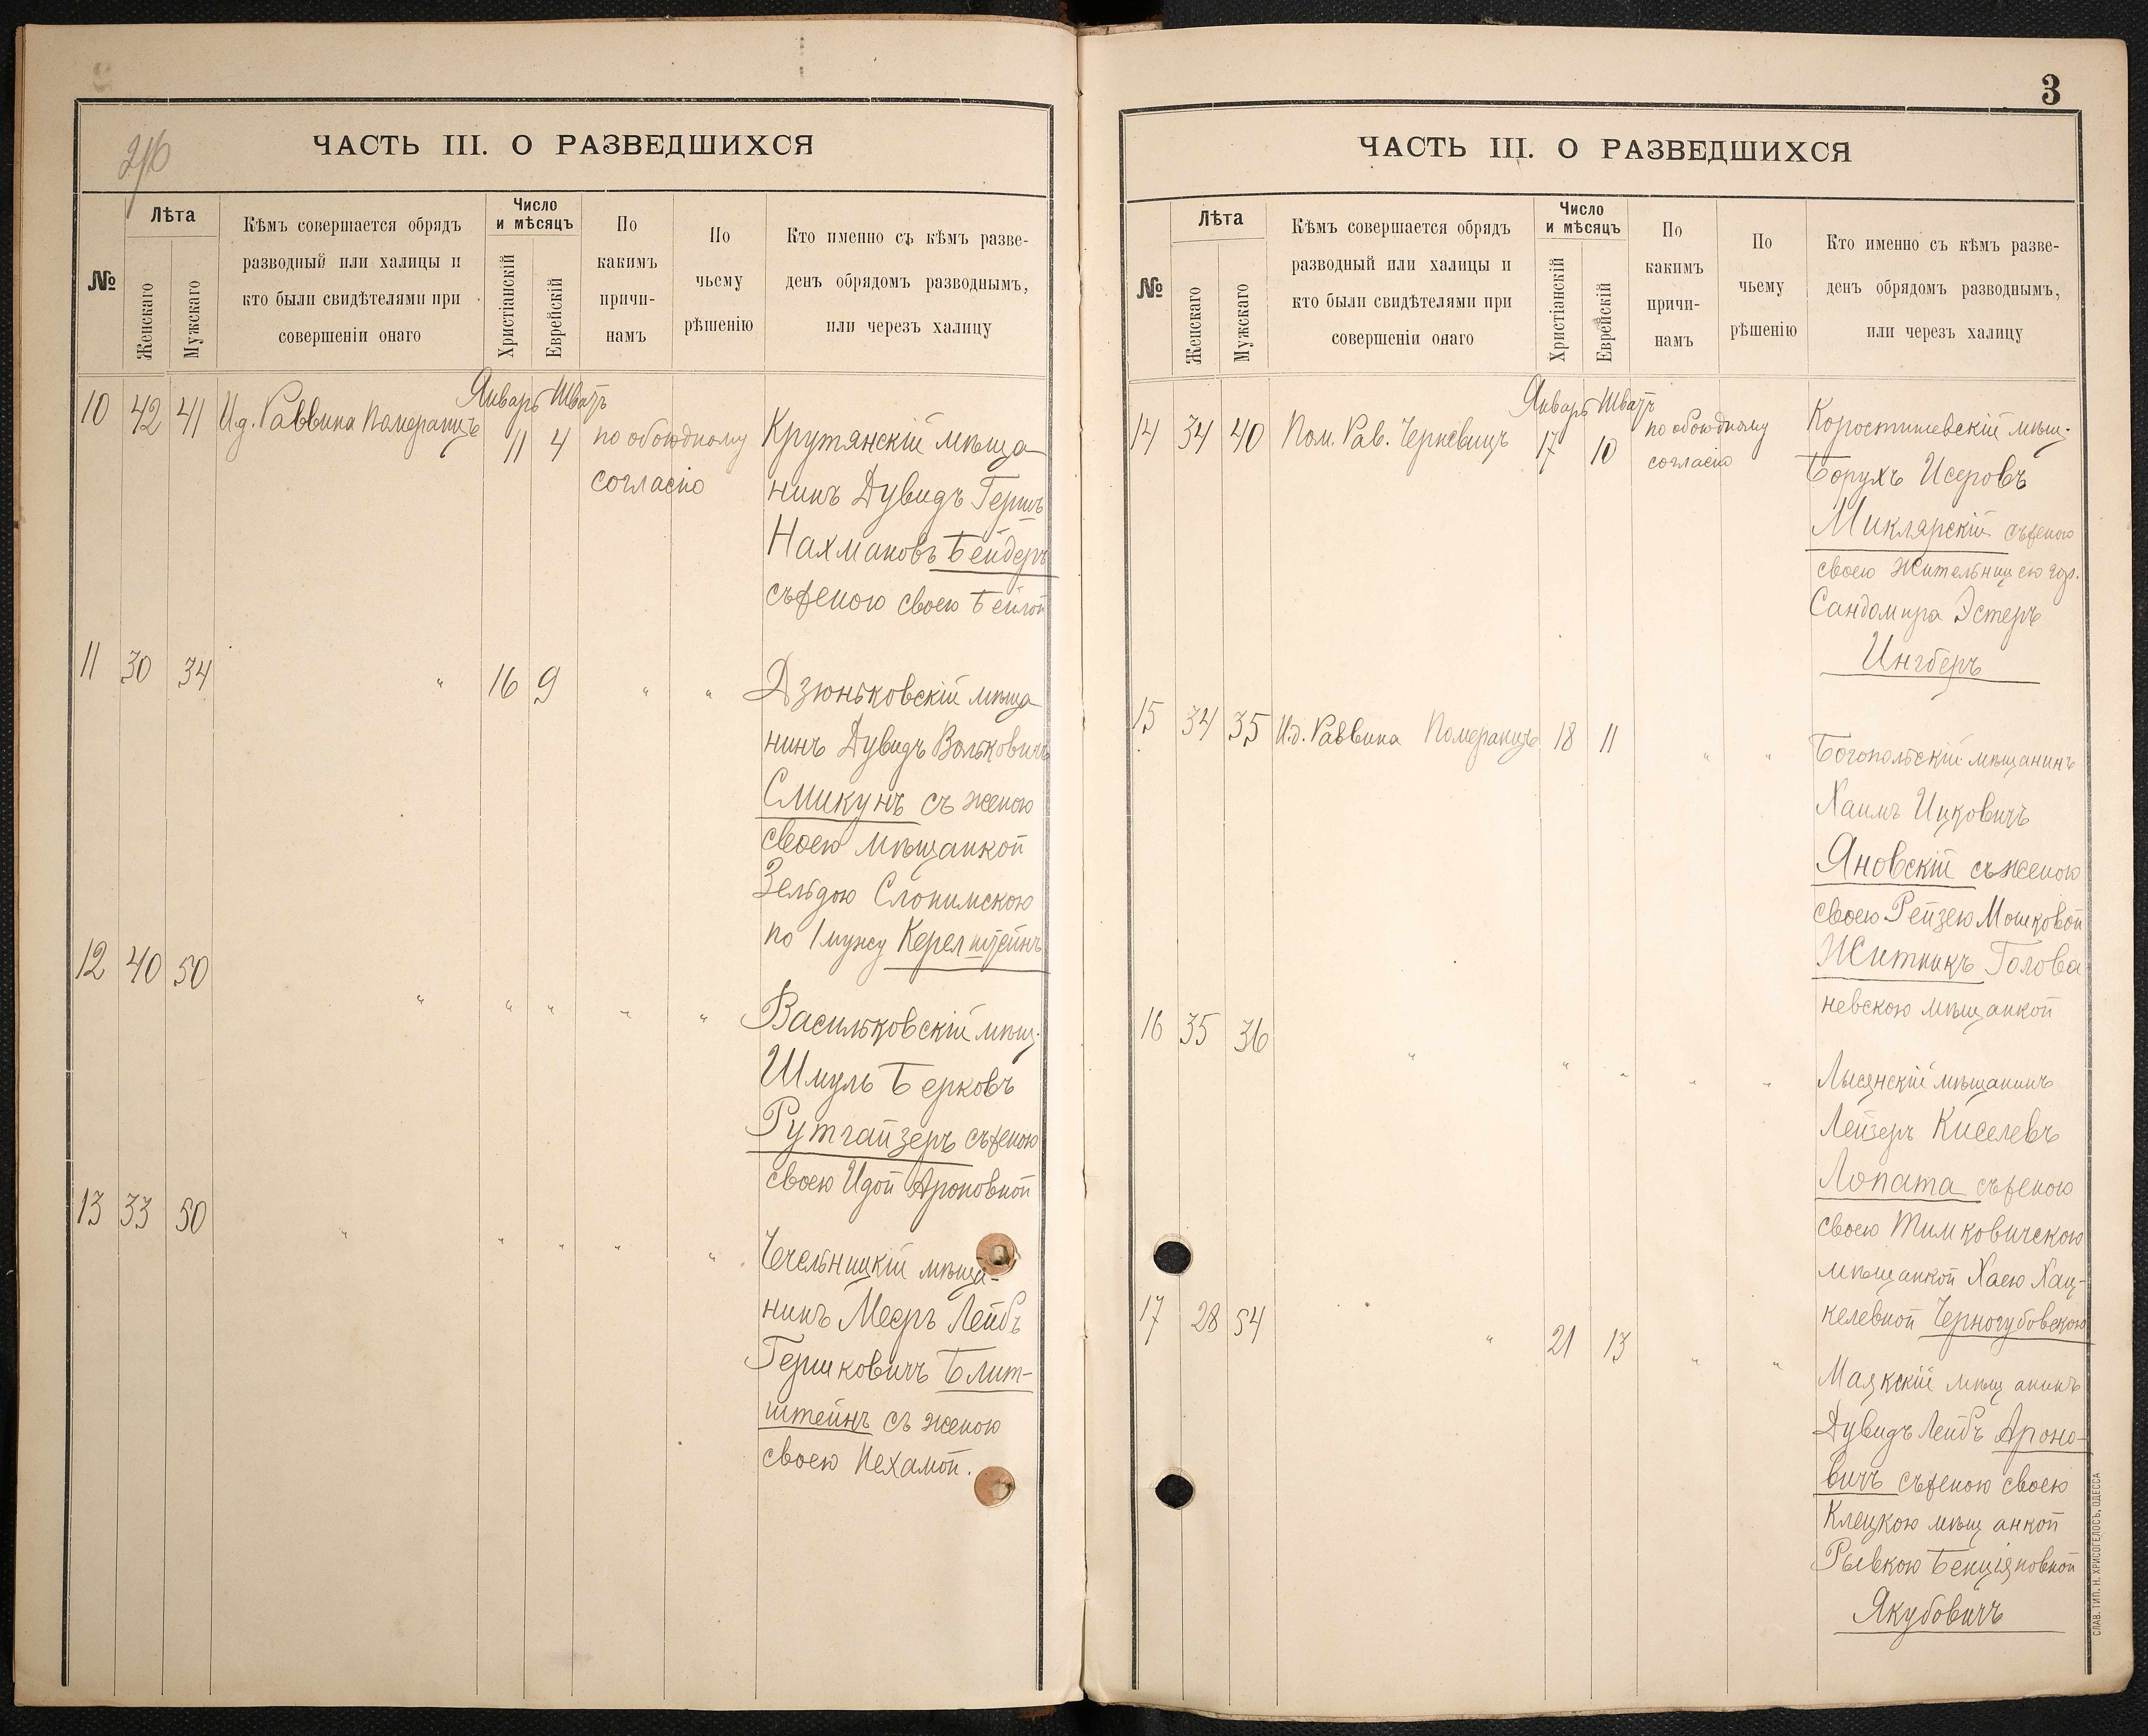 216
ЧАСТЬ III. О РАЗВЕДШИХСЯ
№
Лѣта
Женскаго
Мужскаго
Кѣмъ совершается обрядъ
разводный или халицы и
кто были свидѣтелями при
совершеніи онаго
Число
и мѣсяцъ
Христіанскій
Еврейскій
По
какимъ
причи-
намъ
По
чьему
рѣшенію
Кто именно съ кѣмъ разве-
денъ обрядомъ разводнымъ,
или черезъ халицу
Январь Шватъ
10 42 41 И.д. Раввина Померанцъ 11 4 по обоюдному Крутянскій мѣща
согласію нинъ Дувидъ Гершъ
Нахмановъ Бейдеръ
съ женою своею Бейлой
11 30 34 " 16 9 " " Дзюньковскій мѣща
нинъ Дувидъ Вольковичъ
Смикунъ съ женою
своею мѣщанкой
Зельдою Слонимскою
по 1 мужу Керелштейнъ
12 40 50 " " " " " Васильковскій мѣщ.
Шмуль Берковъ
Рутгайзеръ съ женою
своею Идой Ароновной
13 33 50 " " " " " Чечельницкій мѣща-
нинъ Мееръ Лейбъ
Гершковичъ Блит-
штейнъ съ женою
своею Нехамой.
3
ЧАСТЬ III. О РАЗВЕДШИХСЯ
№
Лѣта
Женскаго
Мужскаго
Кѣмъ совершается обрядъ
разводный или халицы и
кто были свидѣтелями при
совершеніи онаго
Число
и мѣсяцъ
Христіанскій
Еврейскій
По
какимъ
причи-
намъ
По
чьему
рѣшенію
Кто именно съ кѣмъ разве-
денъ обрядомъ разводнымъ,
или черезъ халицу
Январь Шватъ
14 34 40 Пом. Рав. Чернѣвицъ 17 10 по обоюдному Коростишевскій мѣщ.
согласію Борухъ Исеровъ
Миклярскій съ женою
своею жительницею гор.
Сандомира Эстеръ
Ингберъ
15 34 35 И.д. Раввина Померанцъ 18 11 " " Богопольскій мѣщанинъ
Хаимъ Ицковичъ
Яновскій съ женою
своею Рейзею Мошковой
Житникъ Голова
невскою мѣщанкой
16 35 36 " " " " " Лысянскій мѣщанинъ
Лейзеръ Киселевъ
Лопата съ женою
своею Тимковичскою
мѣщанкой Хаею Хац-
келевной Черногубовскою
17 28 54 " 21 13 " " Маякскій мѣщанинъ
Дувидъ Лейбъ Ароно-
вичъ съ женою своею
Клецкою мѣщанкой
Рывкою Бенціяновной
Якубовичъ
СЛАВ. ТИП. Н. ХРИСОГЕЛОСЪ, ОДЕССА